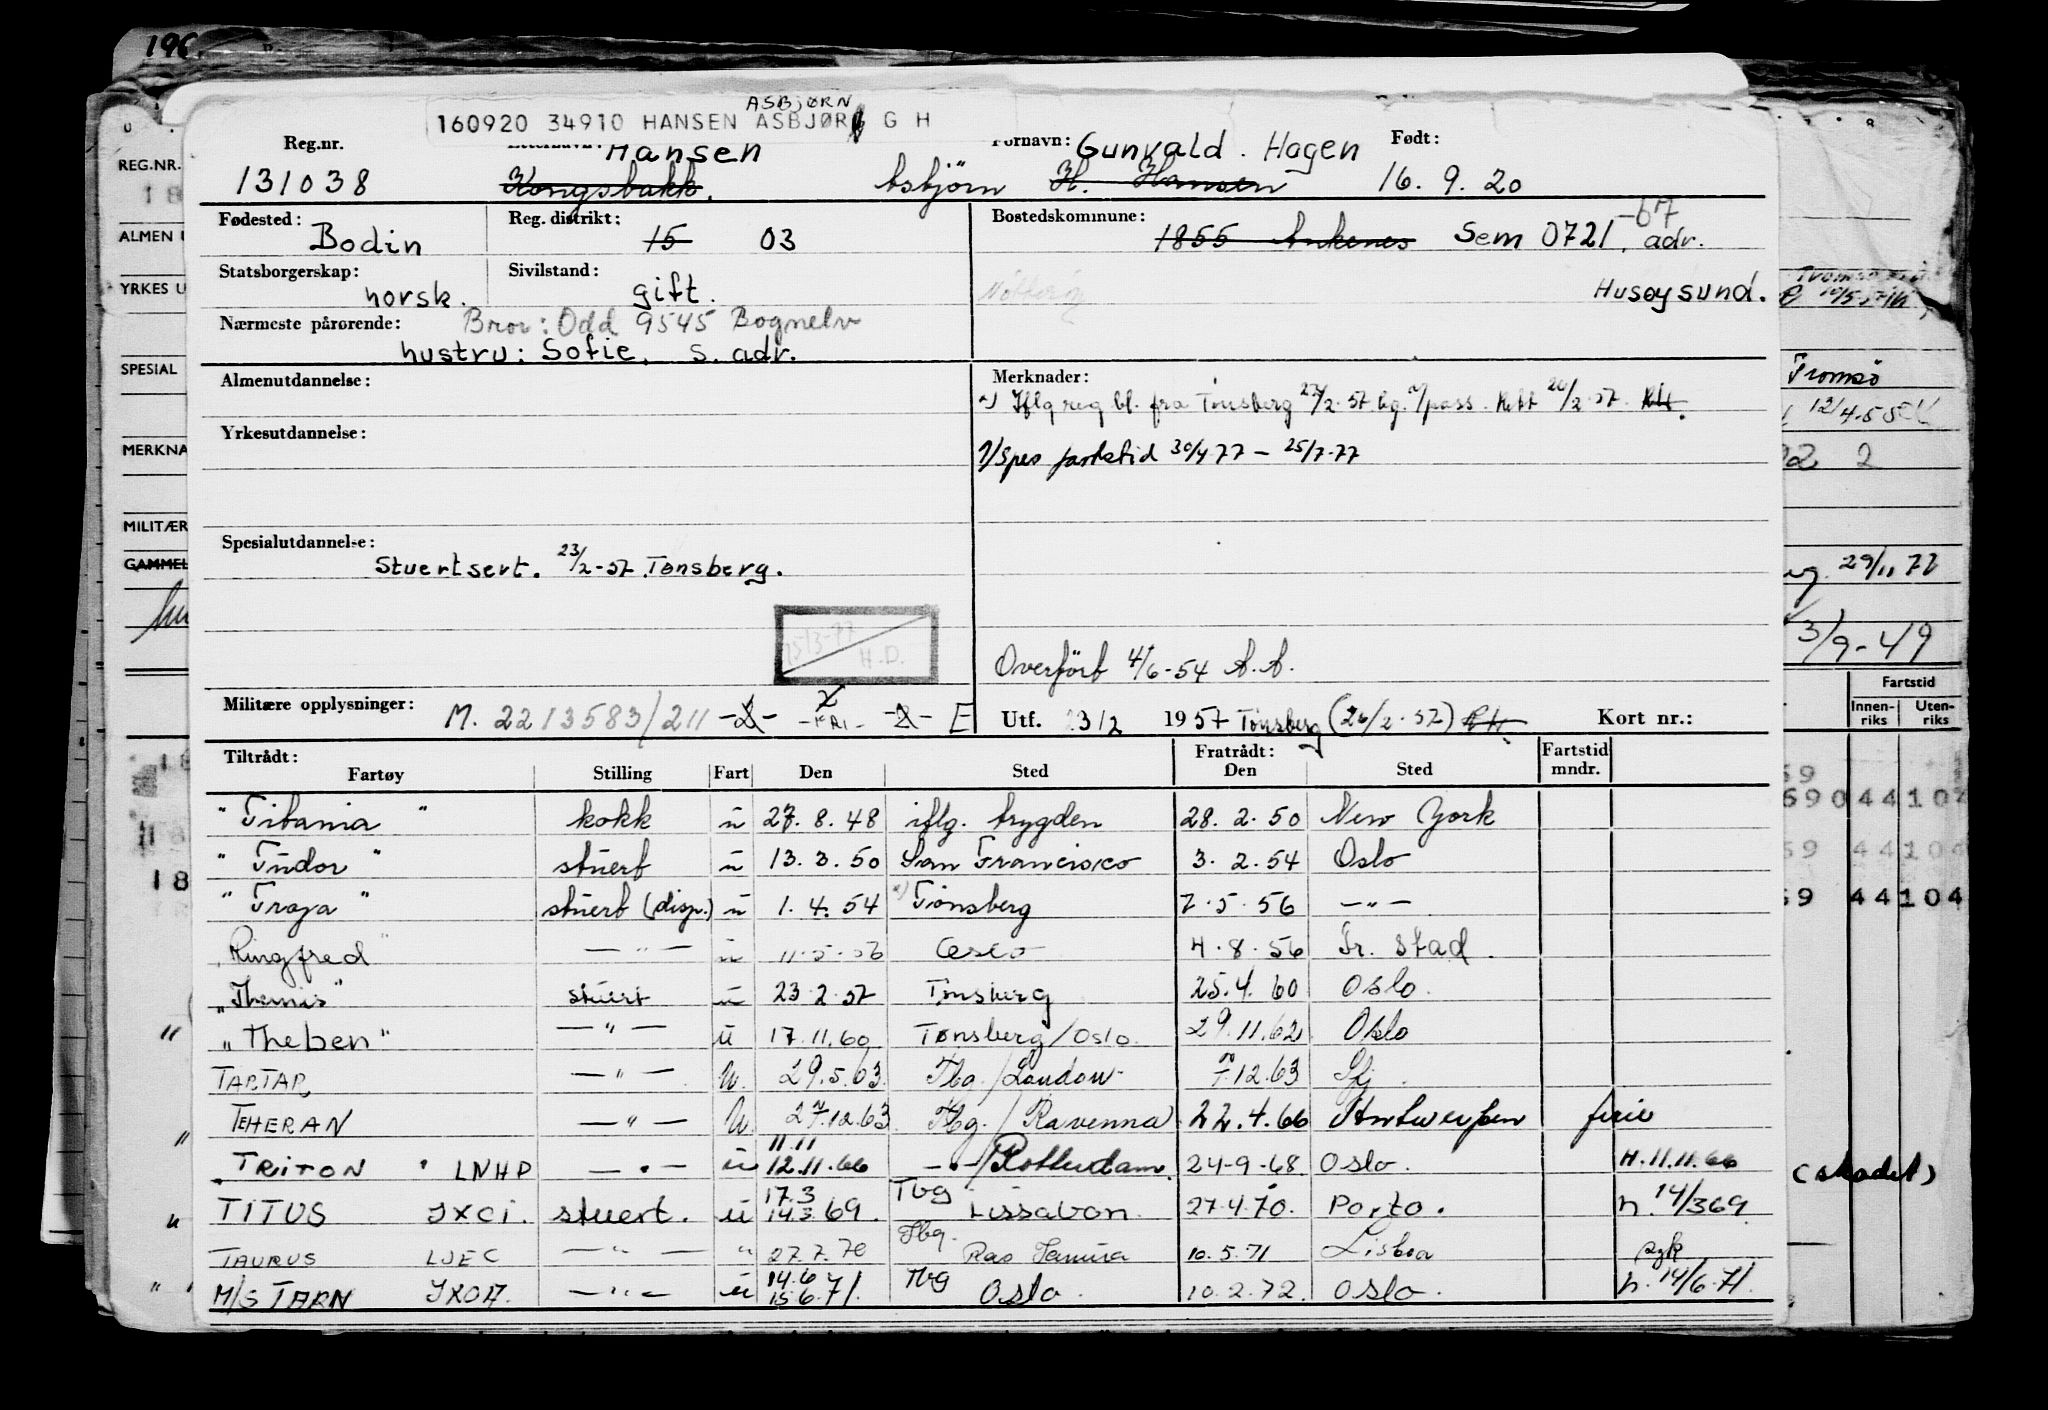 196
ASBJØRN
160920 34910 HANSEN ASBJØRN G H
Reg.nr. Fornavn: Født:
Hansen Gunvald Hagen
131038 Kongsbakk. Asbjörn H. Hansen 16. 9. 20
Fødested: Reg. distrikt: Bostedskommune: -67
Bodin 15 03 1855 Ankenes Sem 0721. adr.
Statsborgerskap: Sivilstand:
norsk. gift. Husøysund.
Nærmeste pårørende: Bror: Odd 9545 Bognelv
hustru: Sofie, s. adr.
Almenutdannelse: Merknader:
Iflg reg bl. fra Tønsberg 23/2-57 Rett 26/2-57
Yrkesutdannelse:
1/spes fartstid 30/4-77 - 25/7-77
Spesialutdannelse:
Stuertsert. 23/2-57 Tønsberg.
15/3-77
H.D.
Overfört 4/6-54 A.A.
Militære opplysninger: M. 2213583/211 -2- -FRI- -2- E Utf. 23/2 1957 Tønsberg (26/2-57) Kort nr.:
Tiltrådt: Fratrådt: Fartstid
Fartøy Stilling Fart Den Sted Den Sted mndr.
"Titania" kokk u 27.8.48 iflg. trygden 28.2.50 New York
"Tudor" stuert u 13.3.50 San Francisco 3.2.54 Oslo
"Troja" stuert (disp.) u 1.4.54 Tönsberg 7.5.56 -"-
"Ringfred" -"- u 11.5.56 Oslo 4.8.56 Fr. stad.
"Themis" stuert u 23.2.57 Tønsberg 25.4.60 Oslo.
"Theben" -"- u 17.11.60 Tønsberg/Oslo. 29.11.62 Oslo
TARTAR -"- U. 29.5.63 Tbg./London 12.63 Sfj.
TEHERAN -"- U. 27.12.63 Tbg./Ravenna 22.4.66 Antwerpen ferie
11.11
"TRITON" LNHP -"- u 12.11.66 -"-/Rotterdam. 24-9-68 Oslo. H.11.11.66
17.3 Tbg
" TITUS JXCI. stuert. u 14.3.69. Lissabon. 27.4.70. Porto. h. 14/3 69
Tbg.
TAURUS LJEC -"- " 27.7.70 Ras Tanura 10.5.71 Lisboa syk
14.6 Tbg
" M/S TARN JXOA. -"- u 15.6.71. Oslo. 10.2.72. Oslo. h. 14/6-71.
REG.NR.
ALMEN U
YRKES U
SPESIAL
MERKNA
MILITÆR
GAMMEL
18
Tromsö
12/4-55
2
29/11 77
3/9-49
Fartstid
Innen- Uten-
riks riks
69044104
69 44104
69 44104
(skadet)